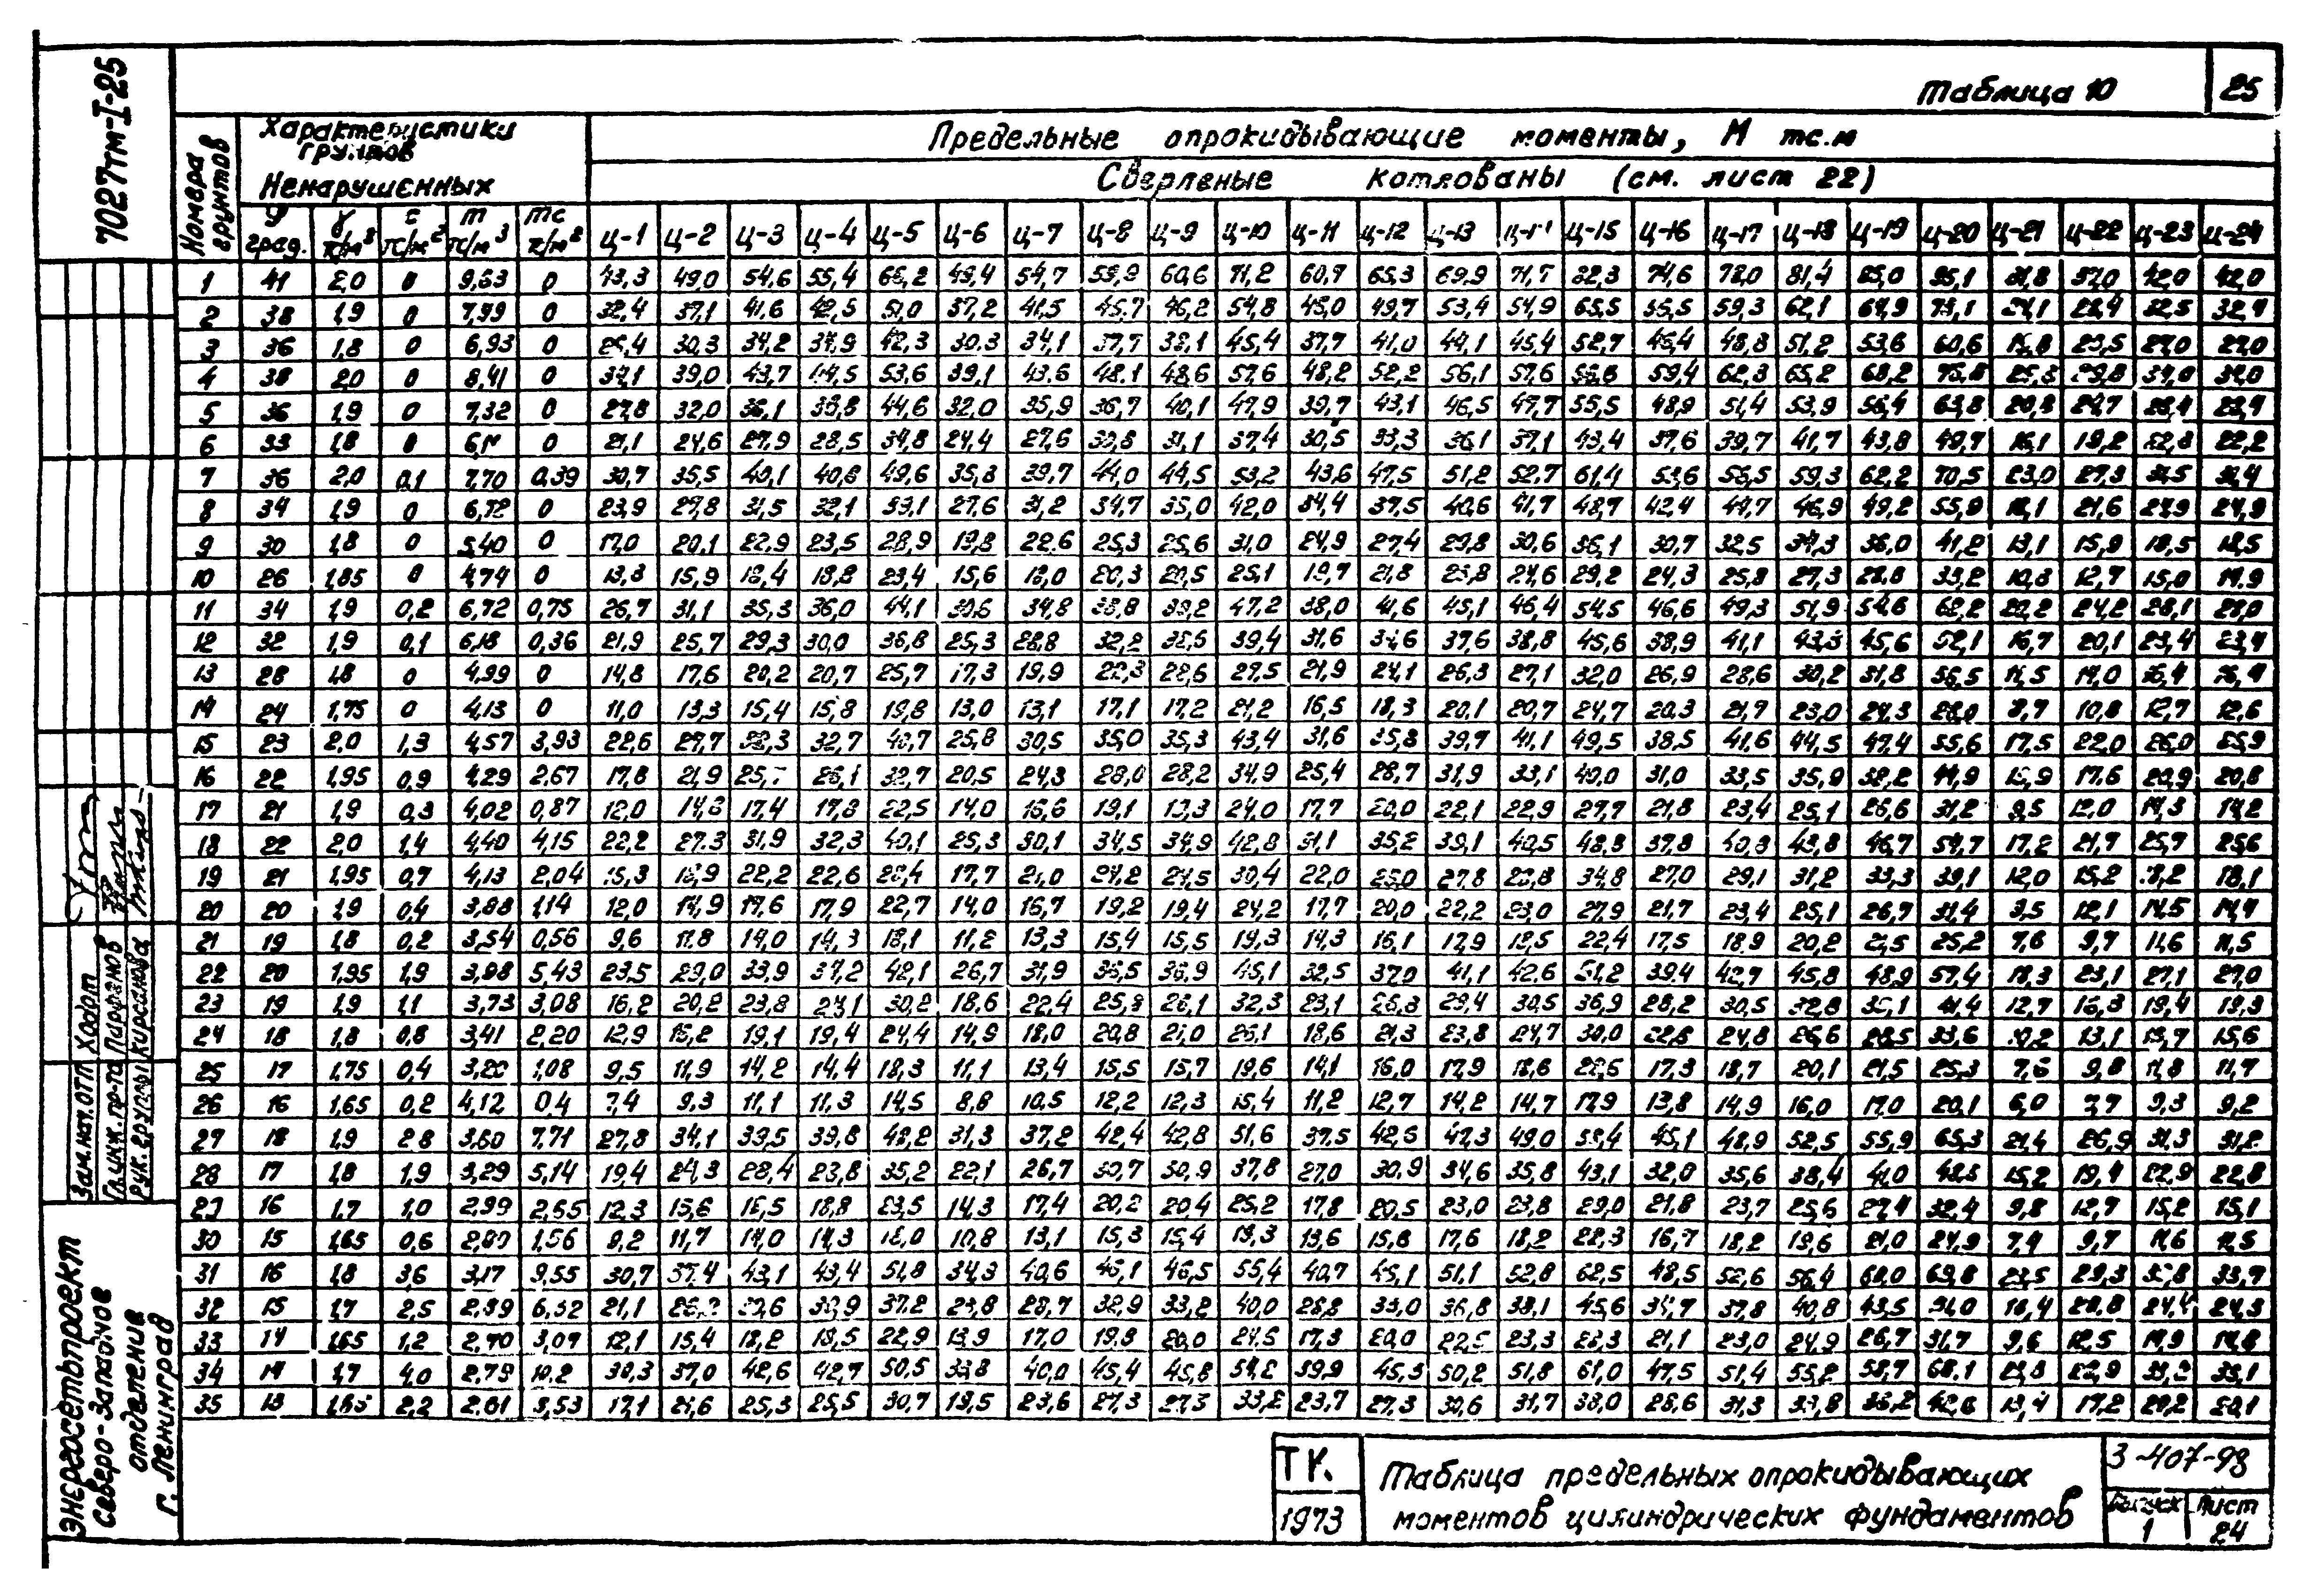 7027тм-I-25
Таблица 10
25
Номера грунтов
Характеристики грунтов
Ненарушенных
Предельные опрокидывающие моменты, М тс.м
Сверленые котлованы (см. лист 22)
φ град. γ т/м³ c т/м² m т/м³ mc т/м²
ц-1 ц-2 ц-3 ц-4 ц-5 ц-6 ц-7 ц-8 ц-9 ц-10 ц-11 ц-12 ц-13 ц-15 ц-16 ц-17 ц-18 ц-19 ц-20 ц-21 ц-22 ц-23 ц-24
1 41 2,0 0 9,63 0 43,3 49,0 54,6 55,4 49,4 54,7 60,6 71,2 60,7 65,3 69,9 74,6 78,0 81,4 37,0 42,0 42,0
2 38 1,9 0 7,99 0 32,4 37,1 41,6 42,5 51,0 37,2 41,5 45,7 46,2 54,8 45,0 49,7 53,4 54,9 65,5 59,3 62,1 64,9 32,4
3 36 1,8 0 6,93 0 30,3 34,2 34,9 42,3 30,3 34,1 37,7 38,1 45,4 37,7 41,0 44,1 45,4 52,7 46,4 48,8 51,2 53,6 60,6 27,0 27,0
4 38 2,0 0 8,41 0 34,1 39,0 43,7 44,5 53,6 39,1 43,6 48,1 48,6 57,6 48,2 52,2 56,1 57,6 59,4 62,3 65,2 68,2 34,0 34,0
5 36 1,9 0 7,32 0 27,8 32,0 36,1 36,8 44,6 32,0 35,9 40,1 47,9 39,7 43,1 46,5 47,7 55,5 48,9 51,4 53,9 56,4 63,8 24,7
6 33 1,8 0 0 21,1 24,6 27,9 28,5 34,8 24,4 27,6 30,8 31,1 37,4 30,5 33,3 36,1 37,1 43,4 37,6 39,7 41,7 43,8 49,7 16,1 19,2 22,2
7 36 2,0 0,1 7,70 0,39 30,7 35,5 40,1 40,8 49,6 35,8 39,7 44,0 44,5 53,2 43,6 47,5 51,2 52,7 61,4 53,6 56,5 59,3 62,2 70,5 23,0 27,3
8 34 1,9 0 6,72 0 23,9 27,8 31,5 32,1 39,1 27,6 31,2 34,7 35,0 42,0 34,4 37,5 40,6 41,7 48,7 42,4 44,7 46,9 49,2 55,9 18,1 21,6 24,9 24,9
9 30 1,8 0 5,40 0 17,0 20,1 22,9 23,5 28,9 19,8 22,6 25,3 25,6 31,0 24,9 27,4 29,8 30,6 36,1 30,7 32,5 34,3 36,0 41,2 13,1 15,9 18,5 18,5
10 26 1,85 0 4,74 0 13,3 15,9 18,4 18,8 23,4 15,6 18,0 20,3 20,5 25,1 19,7 21,8 23,8 24,6 29,2 24,3 25,8 27,3 28,8 33,2 10,3 12,7 15,0 14,9
11 34 1,9 0,2 6,72 0,75 26,7 31,1 35,3 36,0 44,1 30,6 34,8 38,8 39,2 47,2 38,0 41,6 45,1 46,4 54,5 46,6 49,3 51,9 54,6 62,2 20,2 24,2 28,1 28,0
12 32 1,9 0,1 6,18 0,36 21,9 25,7 29,3 30,0 36,8 25,3 28,8 32,2 32,6 39,4 31,6 34,6 37,6 38,8 45,6 38,9 41,1 43,3 45,6 52,1 16,7 20,1 23,4 23,4
13 28 1,8 0 4,99 0 14,8 17,6 20,2 20,7 25,7 17,3 19,9 22,3 22,6 27,5 21,9 24,1 26,3 27,1 32,0 26,9 28,6 30,2 31,8 36,5 11,5 14,0 16,4 16,4
14 24 1,75 0 4,13 0 11,0 13,3 15,4 15,8 19,8 13,0 15,1 17,1 17,2 21,2 16,5 18,3 20,1 20,7 24,7 20,3 21,7 23,0 24,3 28,0 8,7 10,8 12,7 12,6
15 23 2,0 1,3 4,57 3,93 22,6 27,7 32,3 32,7 40,7 25,8 30,5 35,0 35,3 43,4 31,6 35,8 39,7 41,1 49,5 38,5 41,6 44,5 47,4 55,6 17,5 22,0 26,0 25,9
16 22 1,95 0,9 4,29 2,67 17,8 21,9 26,1 32,7 20,5 24,3 28,0 28,2 34,9 25,4 28,7 31,9 33,1 40,0 31,0 33,5 35,9 38,2 44,9 13,9 17,6 20,9 20,8
17 21 1,9 0,3 4,02 0,87 12,0 14,8 17,4 17,8 22,5 14,0 16,6 19,1 19,3 24,0 17,7 20,0 22,1 22,9 27,7 21,8 23,4 25,1 26,6 31,2 9,5 12,0 14,3 14,2
18 22 2,0 1,4 4,40 4,15 22,2 27,3 31,9 32,3 40,1 25,3 30,1 34,5 34,9 42,8 31,1 35,2 39,1 40,5 48,8 37,8 40,8 43,8 46,7 54,7 17,2 21,7 25,7 25,6
19 21 1,95 0,7 4,13 2,04 15,3 18,9 22,2 22,6 28,4 17,7 21,0 24,2 24,5 30,4 22,0 25,0 27,8 28,8 34,8 27,0 29,1 31,2 33,3 39,1 12,0 15,2 18,2 18,1
20 20 1,9 0,4 3,88 1,14 12,0 14,9 17,6 17,9 22,7 14,0 16,7 19,2 19,4 24,2 17,7 20,0 22,2 23,0 27,9 21,7 23,4 25,1 26,7 31,4 9,5 12,1 14,5 14,4
21 19 1,8 0,2 3,54 0,56 9,6 11,8 14,0 14,3 18,1 11,2 13,3 15,4 15,5 19,3 14,3 16,1 17,9 18,5 22,4 17,5 18,9 20,2 21,5 25,2 7,6 9,7 11,6 11,5
22 20 1,95 1,9 3,98 5,43 23,5 29,0 33,9 34,2 42,1 26,7 31,9 36,5 36,9 45,1 32,5 37,0 41,1 42,6 51,2 39,4 42,7 45,8 48,9 57,4 18,3 23,1 27,1 27,0
23 19 1,9 1,1 3,73 3,08 16,2 20,2 23,8 24,1 30,2 18,6 22,4 25,8 26,1 32,3 23,1 26,3 29,4 30,5 36,9 28,2 30,5 32,8 35,1 41,4 12,7 16,3 19,4 19,3
24 18 1,8 0,8 3,41 2,20 12,9 16,2 19,1 19,4 24,4 14,9 18,0 20,8 21,0 26,1 18,6 21,3 23,8 24,7 30,0 22,8 24,8 26,6 28,5 33,6 10,2 13,1 15,7 15,6
25 17 1,75 0,4 3,20 1,08 9,5 11,9 14,2 14,4 18,3 11,1 13,4 15,5 15,7 19,6 14,1 16,0 17,9 18,6 22,6 17,3 18,7 20,1 21,5 25,3 7,6 9,8 11,8 11,7
26 16 1,65 0,2 4,12 0,4 7,4 9,3 11,1 11,3 14,5 8,8 10,5 12,2 12,3 15,4 11,2 12,7 14,2 14,7 17,9 13,8 14,9 16,0 17,0 20,1 6,0 7,7 9,3 9,2
27 18 1,9 2,8 3,60 7,71 27,8 34,1 39,5 39,8 48,2 31,3 37,2 42,4 42,8 51,6 37,5 42,6 47,3 49,0 58,4 45,1 48,9 52,5 55,9 65,3 21,4 26,9 31,3 31,2
28 17 1,8 1,9 3,29 5,14 19,4 24,3 28,4 23,8 35,2 22,1 26,7 30,7 30,9 37,8 27,0 30,9 34,6 35,8 43,1 32,0 35,6 38,4 41,0 15,2 19,4 22,9 22,8
29 16 1,7 1,0 2,99 2,65 12,3 15,6 18,5 18,8 23,5 14,3 17,4 20,2 20,4 25,2 17,8 20,5 23,0 23,8 29,0 21,8 23,7 25,6 27,4 32,4 9,8 12,7 15,2 15,1
30 15 1,65 0,6 2,80 1,56 9,2 11,7 14,0 14,3 18,0 10,8 13,1 15,3 15,4 19,3 13,6 15,6 17,6 18,2 22,3 16,7 18,2 19,6 21,0 24,9 7,4 9,7 11,6 11,5
31 16 1,8 3,6 3,17 9,55 30,7 37,4 43,1 43,4 51,8 34,3 40,6 46,1 46,5 55,4 40,7 46,1 51,1 52,8 62,5 48,5 52,6 56,4 60,0 69,8 23,5 29,3 33,8 33,7
32 15 1,7 2,5 2,89 6,32 21,1 30,6 30,9 37,2 23,8 28,7 32,9 33,2 40,0 28,8 33,0 36,8 38,1 45,6 34,7 37,8 40,8 43,5 51,0 16,4 20,8 24,4 24,3
33 14 1,65 1,2 2,70 3,09 12,1 15,4 18,2 18,5 22,9 13,9 17,0 19,8 20,0 24,6 17,3 20,0 22,5 23,3 28,3 21,1 23,0 24,9 26,7 31,7 9,6 12,5 14,9 14,8
34 14 1,7 4,0 2,79 10,2 30,3 37,0 42,6 42,7 50,5 33,8 40,0 45,4 45,8 54,2 39,9 45,3 50,2 51,8 61,0 47,5 51,4 55,2 58,7 68,1 33,1
35 13 1,65 2,2 2,61 5,53 17,1 21,6 25,3 25,5 30,7 19,5 23,6 27,3 27,5 33,2 23,7 27,3 30,6 31,7 38,0 28,6 31,3 33,8 36,2 42,6 13,4 17,2 20,2 20,1
Зам. нач. отп Ходот
Гл. инж. пр-та
Рук. группы Кирсанова
Энергосетьпроект
Северо-Западное
отделение
г. Ленинград
ТК.
1973
Таблица предельных опрокидывающих
моментов цилиндрических фундаментов
3-407-98
Выпуск 1
Лист 24